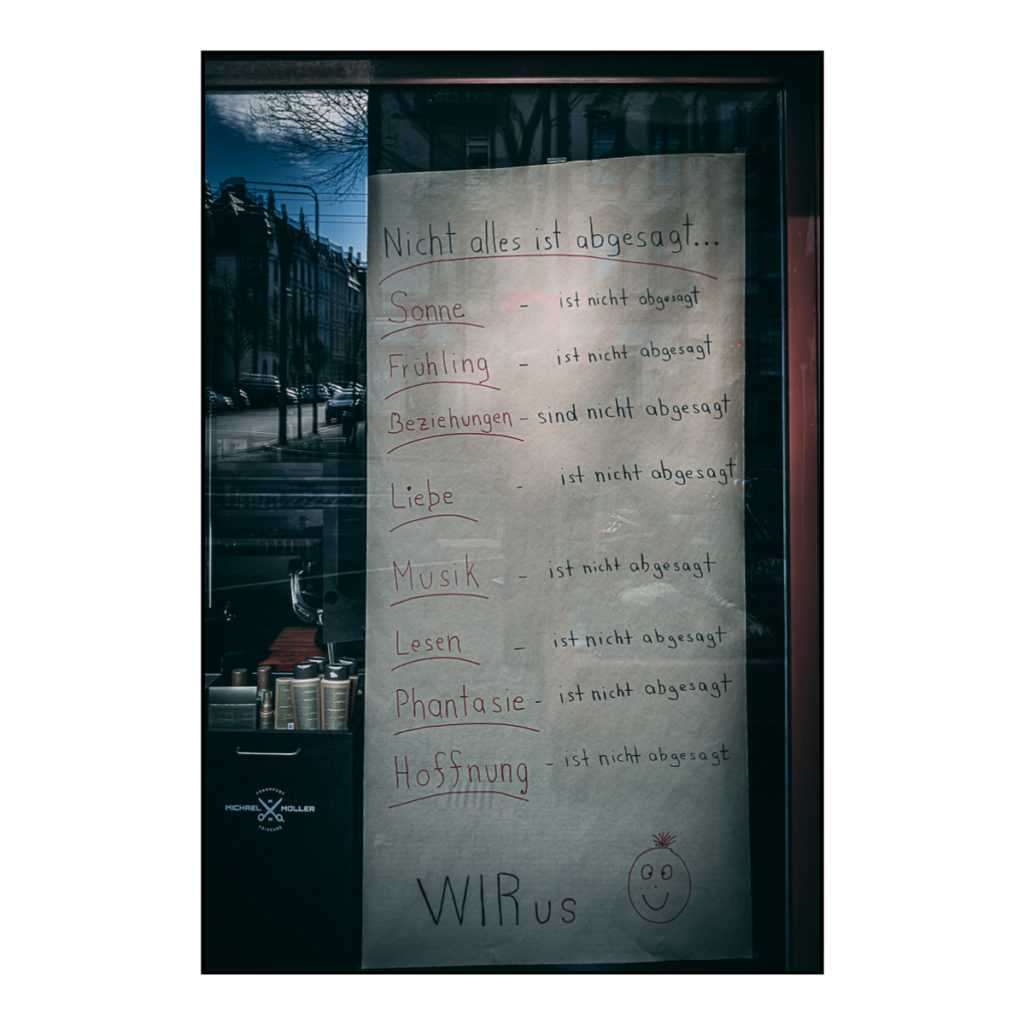 Nicht alles ist abgesagt...
Sonne - ist nicht abgesagt
Frühling - ist nicht abgesagt
Beziehungen - sind nicht abgesagt
Liebe - ist nicht abgesagt
Musik - ist nicht abgesagt
Lesen - ist nicht abgesagt
Phantasie - ist nicht abgesagt
Hoffnung - ist nicht abgesagt
WIRus
FRANKFURT
MICHAEL MOLLER
M
M